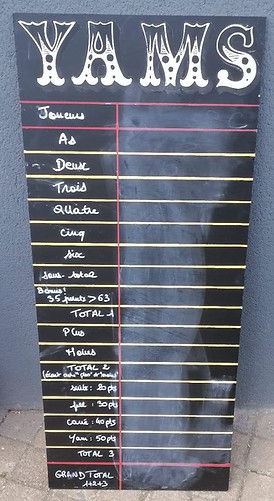 YAMS
Joueurs
As
Deux
Trois
Quatre
Cinq
Six
Sous-total
Bonus!
35 points > 63
TOTAL 1
Plus
Moins
TOTAL 2
suite: 20 pts
full: 30 pts
carré: 40 pts
Yam: 50 pts
TOTAL 3
GRAND TOTAL
1+2+3